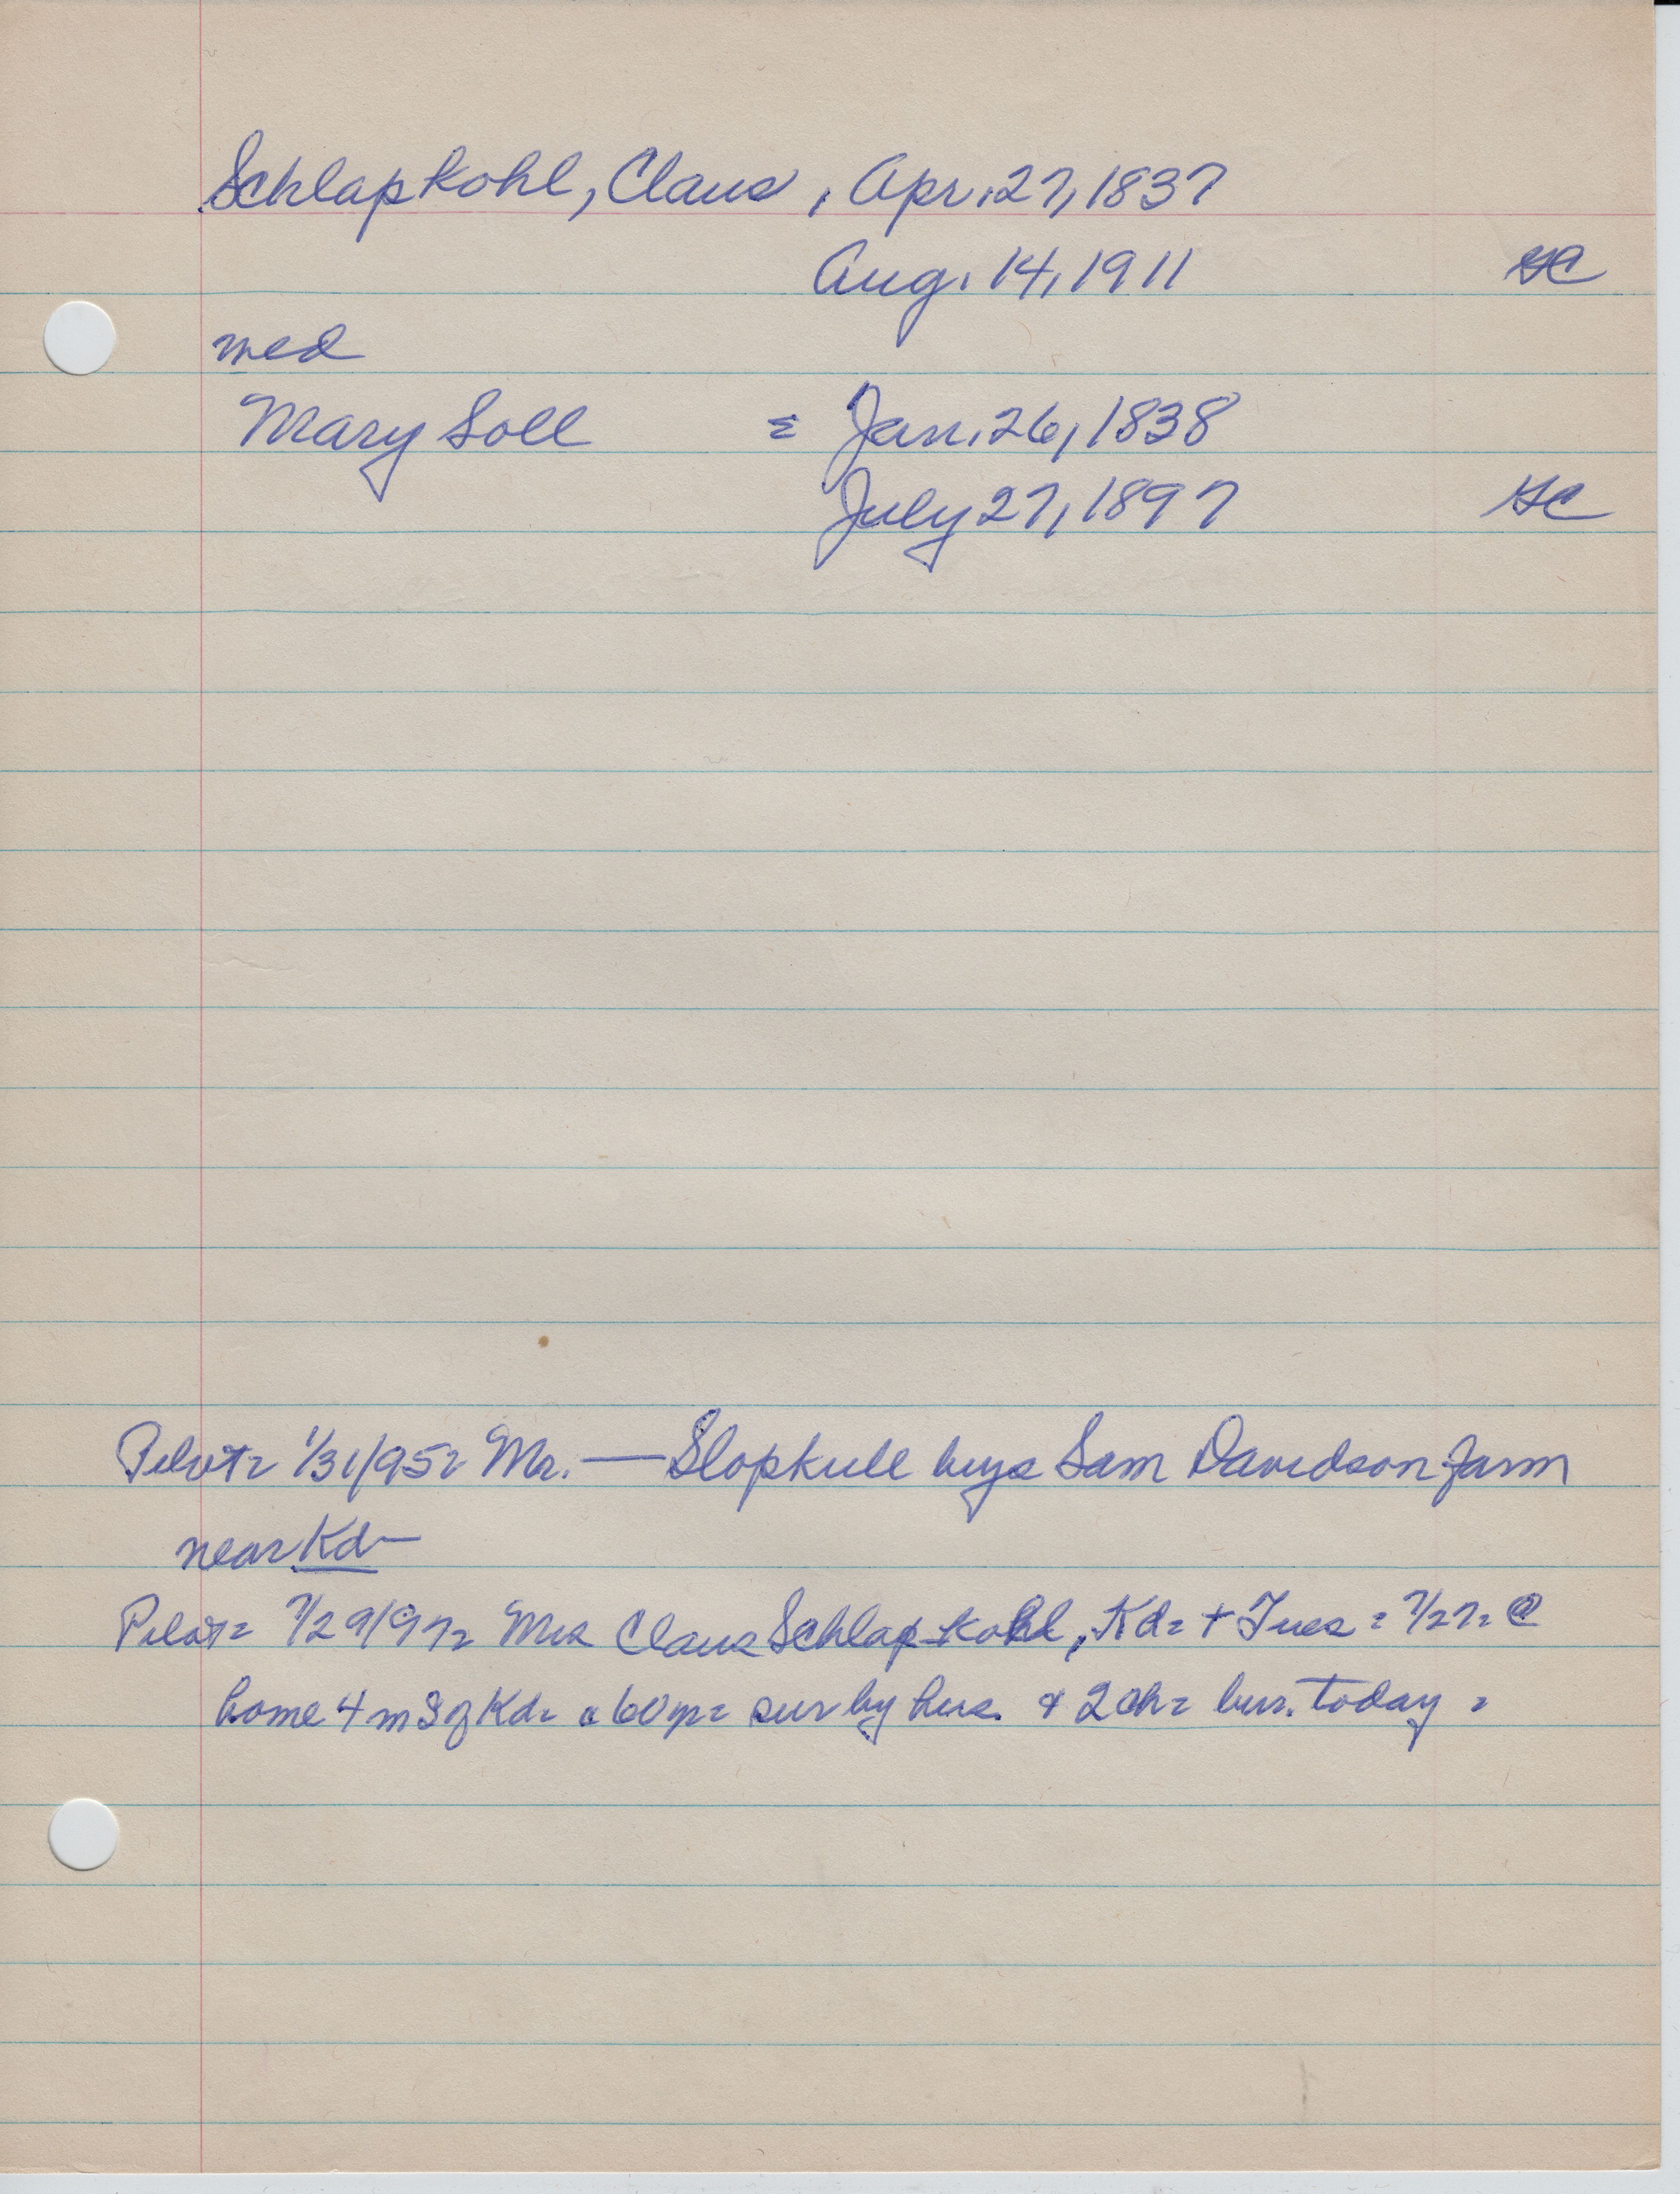 Schlapkohl, Claus, Apr. 27, 1837
Aug. 14, 1911 GC
med
Mary Soll = Jan. 26, 1838
July 27, 1897 GC
Pilot= 1/31/95= Mr. — Slopkull buys Sam Davidson farm
near Kd-
Pilot= 7/29/97= Mrs Claus Schlapkohl, Kd= + Tues = 7/27= @
home 4 m S of Kd= a 60 yr= sur by hus. & 2 ch= bur. today =